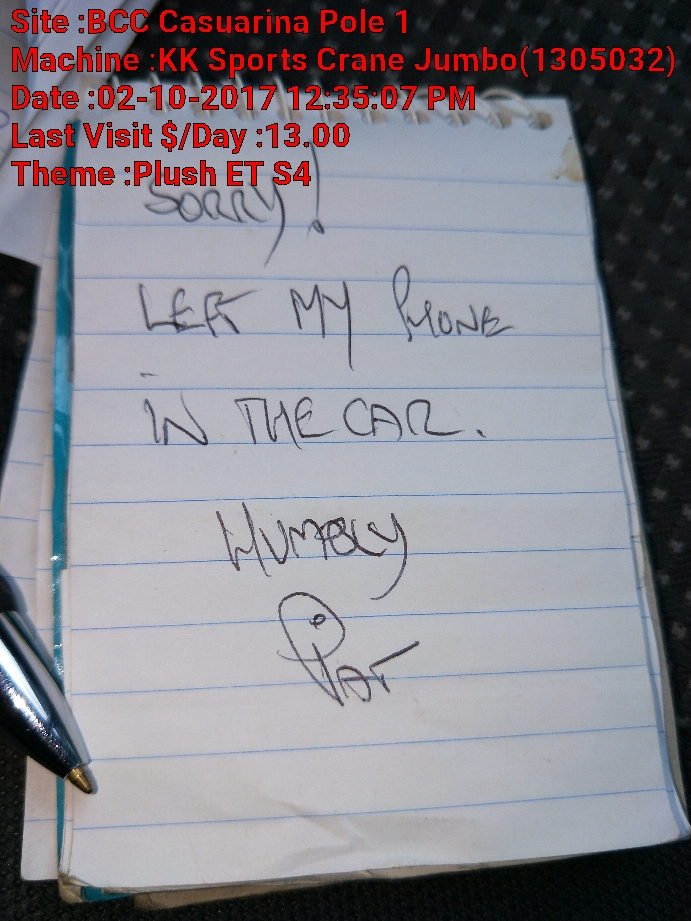 Site :BCC Casuarina Pole 1
Machine :KK Sports Crane Jumbo(1305032)
Date :02-10-2017 12:35:07 PM
Last Visit $/Day :13.00
Theme :Plush ET S4
SORRY!
LEFT MY PHONE
IN THE CAR.
HUMBLY
PAT